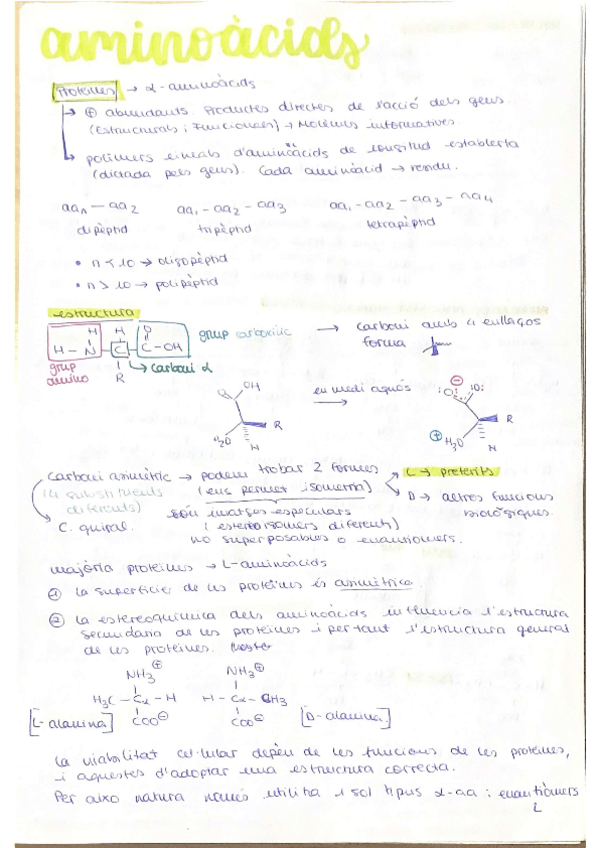 aminoàcids
Proteïnes → α-aminoàcids
→ ⊕ abundants. Productes directes de l'acció dels gens.
(Estructurals i Funcionals) → Molècules informatives.
→ polímers lineals d'aminoàcids de longitud establerta
(dictada pels gens). Cada aminoàcid → residu.
aa₁ — aa₂ aa₁ - aa₂ - aa₃ aa₁ - aa₂ - aa₃ - aa₄
dipèptid tripèptid tetrapèptid
• n < 10 → oligopèptid
• n > 10 → polipèptid
estructura
H H O
H - N - C - C - OH grup carboxílic → carboni amb 4 enllaços
grup amino R → carboni α forma
O OH en medi aquós → ⊖ :O: :O:
R R
H₂N H ⊕ H₃N H
carboni asimètric → podem trobar 2 formes L → preferits
(4 substituents (ens permet isomeria) D → altres funcions
diferents) són imatges especulars biològiques.
C. quiral. (estereoisòmers diferents)
no superposables o enantiòmers.
majoria proteïnes → L-aminoàcids
① La superfície de les proteïnes és asimètrica.
② La estereoquímica dels aminoàcids influencia l'estructura
secundària de les proteïnes i per tant l'estructura general
de les proteïnes.
NH₃⊕ NH₃⊕
H₃C - Cα - H H - Cα - CH₃
[L-alanina] COO⊖ COO⊖ [D-alanina]
La viabilitat cel·lular depèn de les funcions de les proteïnes,
i aquestes d'adoptar una estructura correcta.
Per això natura només utilitza 1 sol tipus α-aa: enantiòmers
L